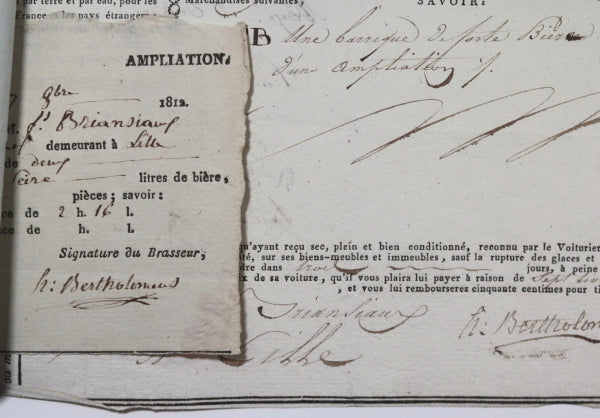 par terre et par eau, pour les
France. les pays étrangers;
Marchandises suivantes,
SAVOIR:
B Une barrique de forte Bière
d'une ampliation
AMPLIATION.
9bre 1812.
M. Briansiaux
demeurant à Lille
de deux
litres de bière,
pièces; savoir:
ce de 2 h. 16 l.
ce de h. l.
Signature du Brasseur,
h: Bertholomeus
qu'ayant reçu sec, plein et bien conditionné, reconnu par le Voiturier
té, sur ses biens-meubles et immeubles, sauf la rupture des glaces et
dre dans trois jours, à peine
ix de sa voiture, qu'il vous plaira lui payer à raison de sept
, et vous lui rembourserez cinquante centimes pour ti
Briansiaux
h: Bertholomeus
Lille